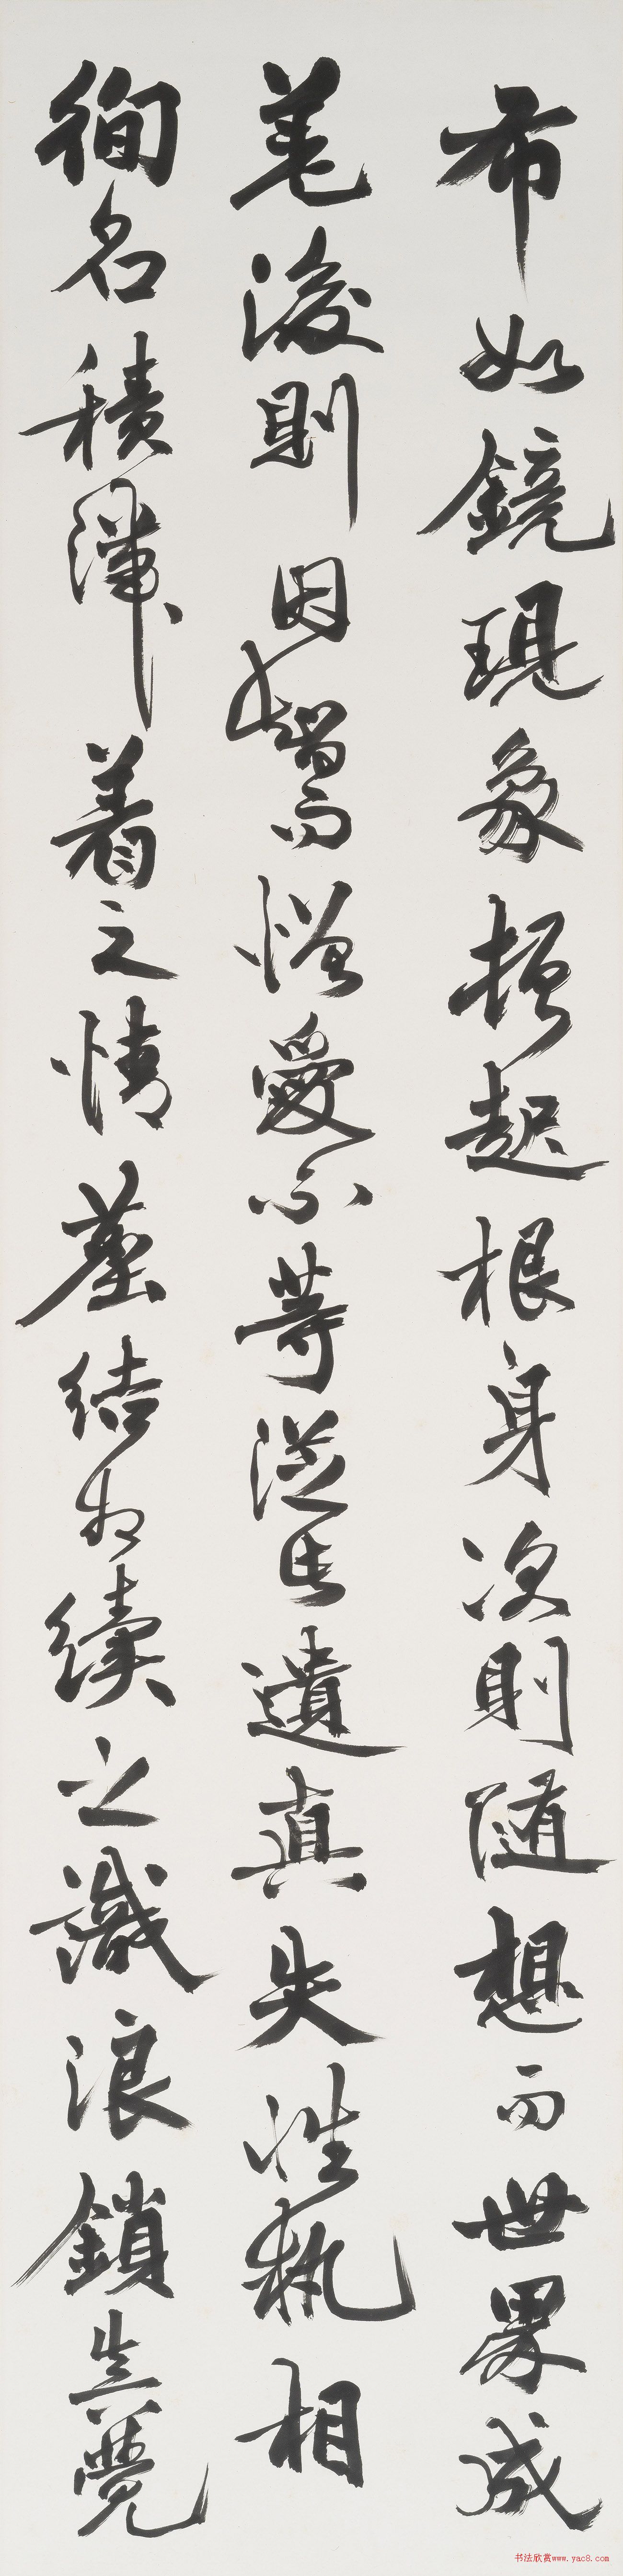 布如鏡現象頓起根身次則隨想而世界成
差後則因智而憎愛不等從此遺真失性執相
徇名積滯着之情塵結相續之識浪鎖真覺
书法欣赏www.yac8.com